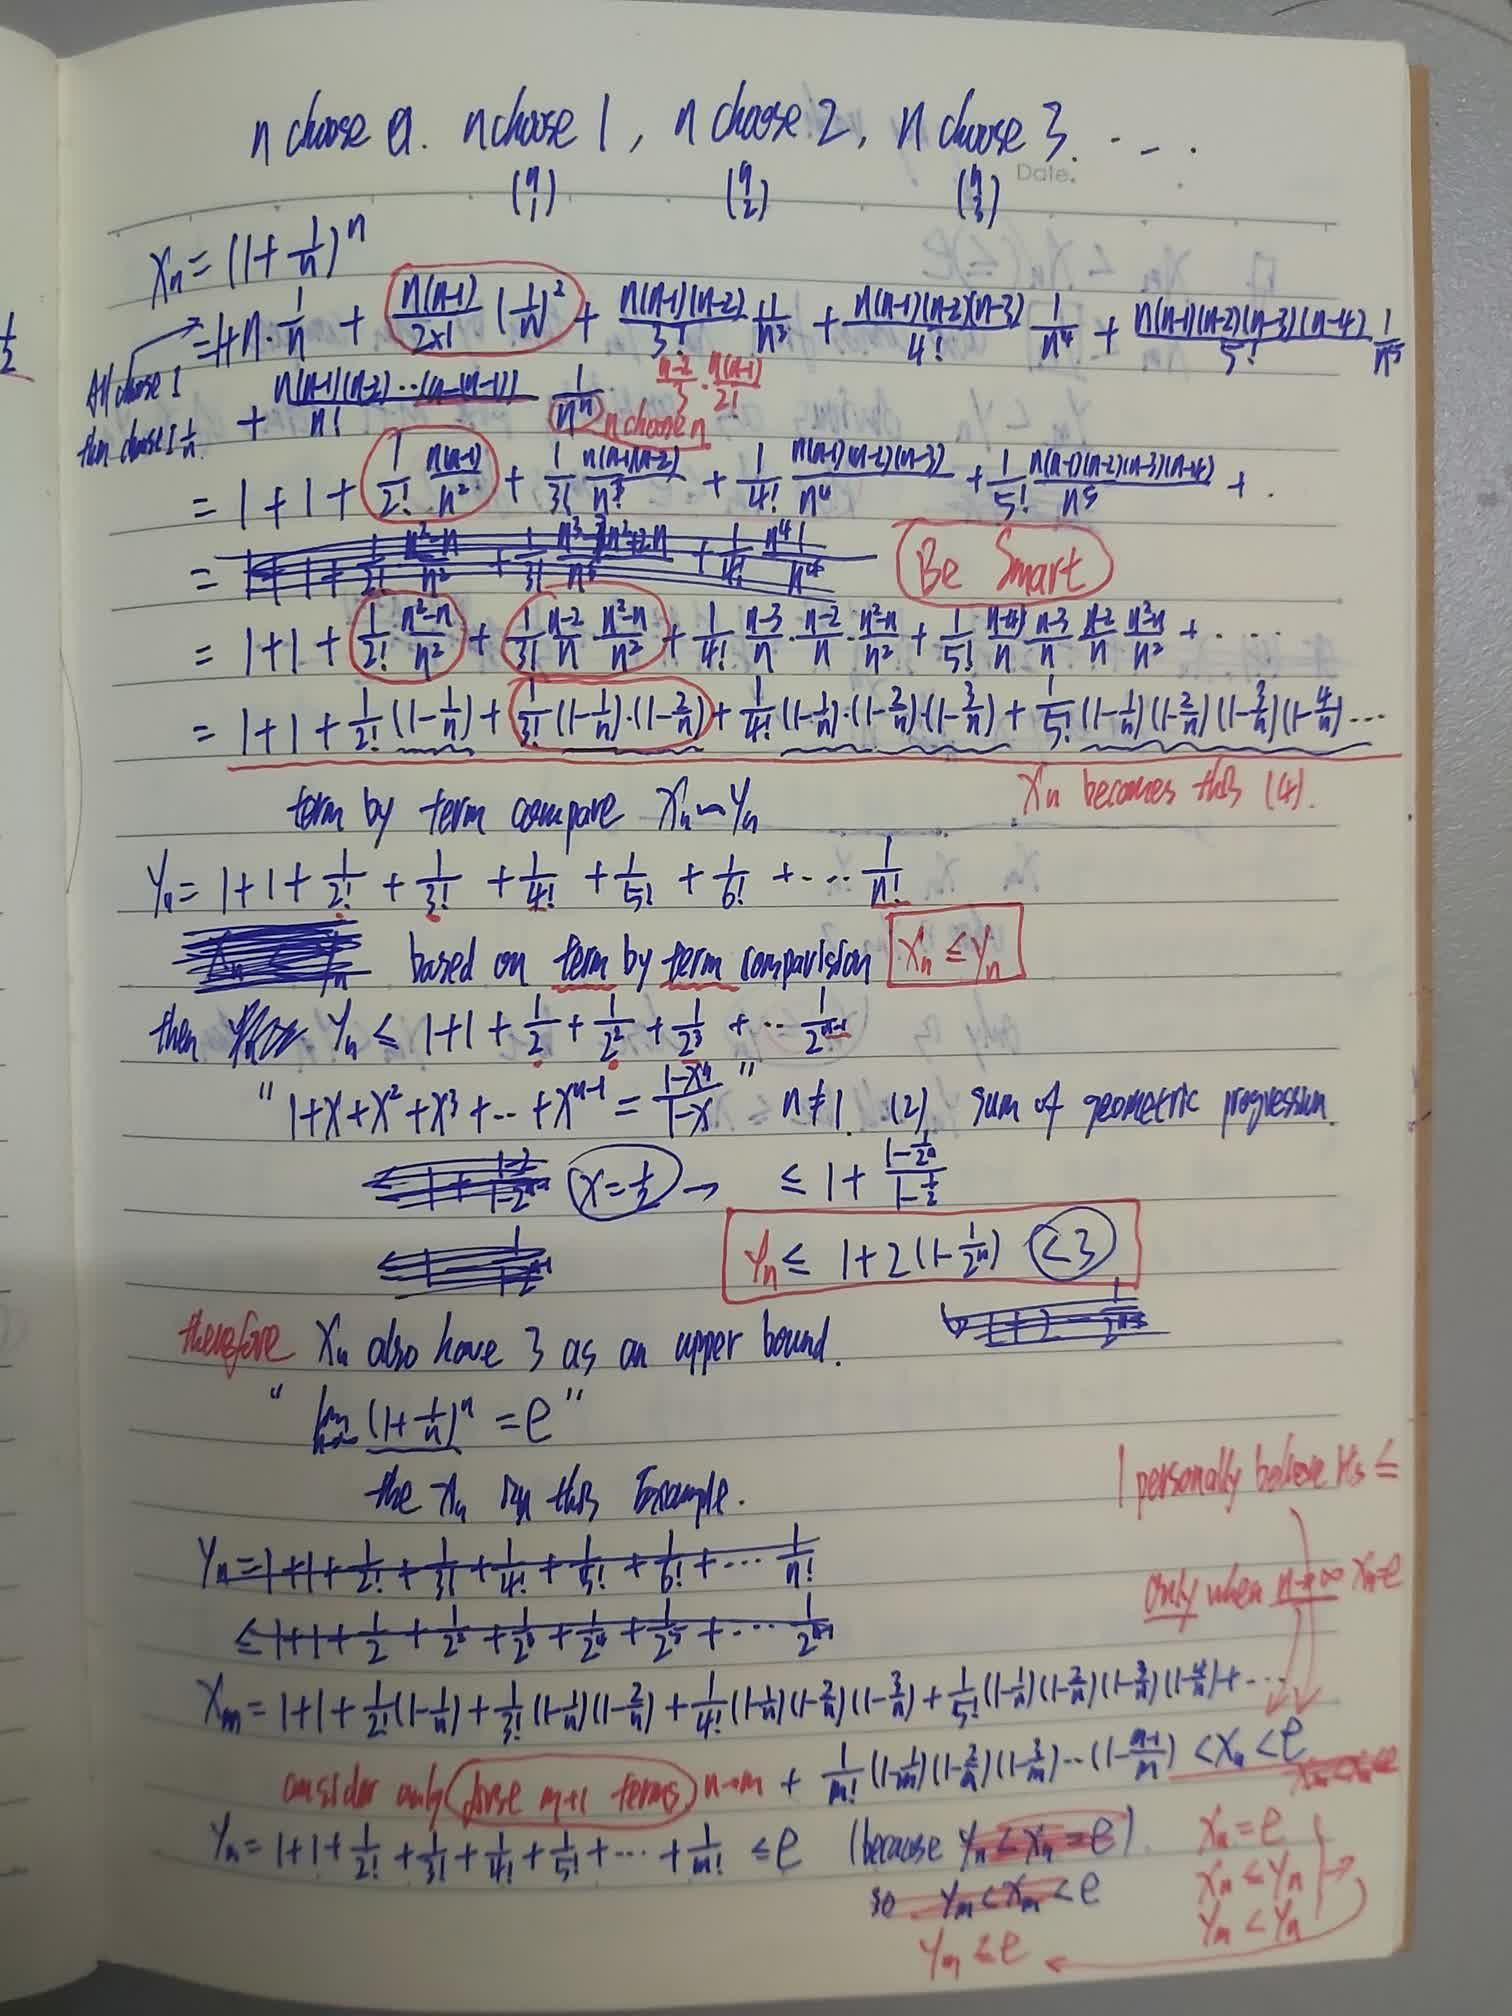 n choose 0. n choose 1, n choose 2, n choose 3. ....
Date.
(n 1) (n 2) (n 3)
Xn = (1 + 1/n)^n
= 1 + n · 1/n + n(n-1)/2×1 (1/n)^2 + n(n-1)(n-2)/3! 1/n^3 + n(n-1)(n-2)(n-3)/4! 1/n^4 + n(n-1)(n-2)(n-3)(n-4)/5! 1/n^5
All choose 1
then choose 1 1/n.
+ n(n-1)(n-2)···(n-(n-1))/n! 1/n^n n choose n
n-2/3 · n(n-1)/2!
= 1 + 1 + 1/2! n(n-1)/n^2 + 1/3! n(n-1)(n-2)/n^3 + 1/4! n(n-1)(n-2)(n-3)/n^4 + 1/5! n(n-1)(n-2)(n-3)(n-4)/n^5 + .
=
Be Smart
= 1+1 + 1/2! · n^2-n/n^2 + 1/3! n-2/n n^2-n/n^2 + 1/4! n-3/n · n-2/n · n^2-n/n^2 + 1/5! n-4/n n-3/n n-2/n n^2-n/n^2 + ····
= 1+1 + 1/2! (1-1/n) + 1/3! (1-1/n)·(1-2/n) + 1/4! (1-1/n)·(1-2/n)·(1-3/n) + 1/5! (1-1/n)(1-2/n)(1-3/n)(1-4/n)···
Xn becomes this (4).
term by term compare Xn ~ Yn
Yn = 1+1 + 1/2! + 1/3! + 1/4! + 1/5! + 1/6! + ··· 1/n!
based on term by term comparision Xn ≤ Yn
then Yn ≤ 1+1 + 1/2 + 1/2^2 + 1/2^3 + ·· 1/2^n-1
"1+x+x^2+x^3+··+x^n-1 = 1-x^n/1-x" n≠1. (2) sum of geometric progression.
x=1/2 → ≤ 1 + 1-1/2^n/1-1/2
Yn ≤ 1+2(1-1/2^n) <3
therefore Xn also have 3 as an upper bound.
"lim n→∞ (1+1/n)^n = e"
the Xn in this Example.
I personally believe it's ≤
Yn = 1+1+ 1/2! + 1/3! + 1/4! + 1/5! + 1/6! + ··· 1/n!
only when n→∞ Xn=e
≤ 1+1+ 1/2 + 1/2^2 + 1/2^3 + 1/2^4 + 1/2^5 + ··· 1/2^n-1
Xm = 1+1+ 1/2!(1-1/n) + 1/3!(1-1/n)(1-2/n) + 1/4!(1-1/n)(1-2/n)(1-3/n) + 1/5!(1-1/n)(1-2/n)(1-3/n)(1-4/n) + ···
consider only these m+1 terms n→m + 1/m! (1-1/m)(1-2/m)(1-3/m)··(1-m-1/m) < Xn < e
Ym = 1+1+ 1/2! + 1/3! + 1/4! + 1/5! + ··· + 1/m! ≤ e (because Yn < Xn = e).
so Ym < Xm < e
Xn = e
Xn ≤ Yn
Ym < Yn
Ym ≤ e